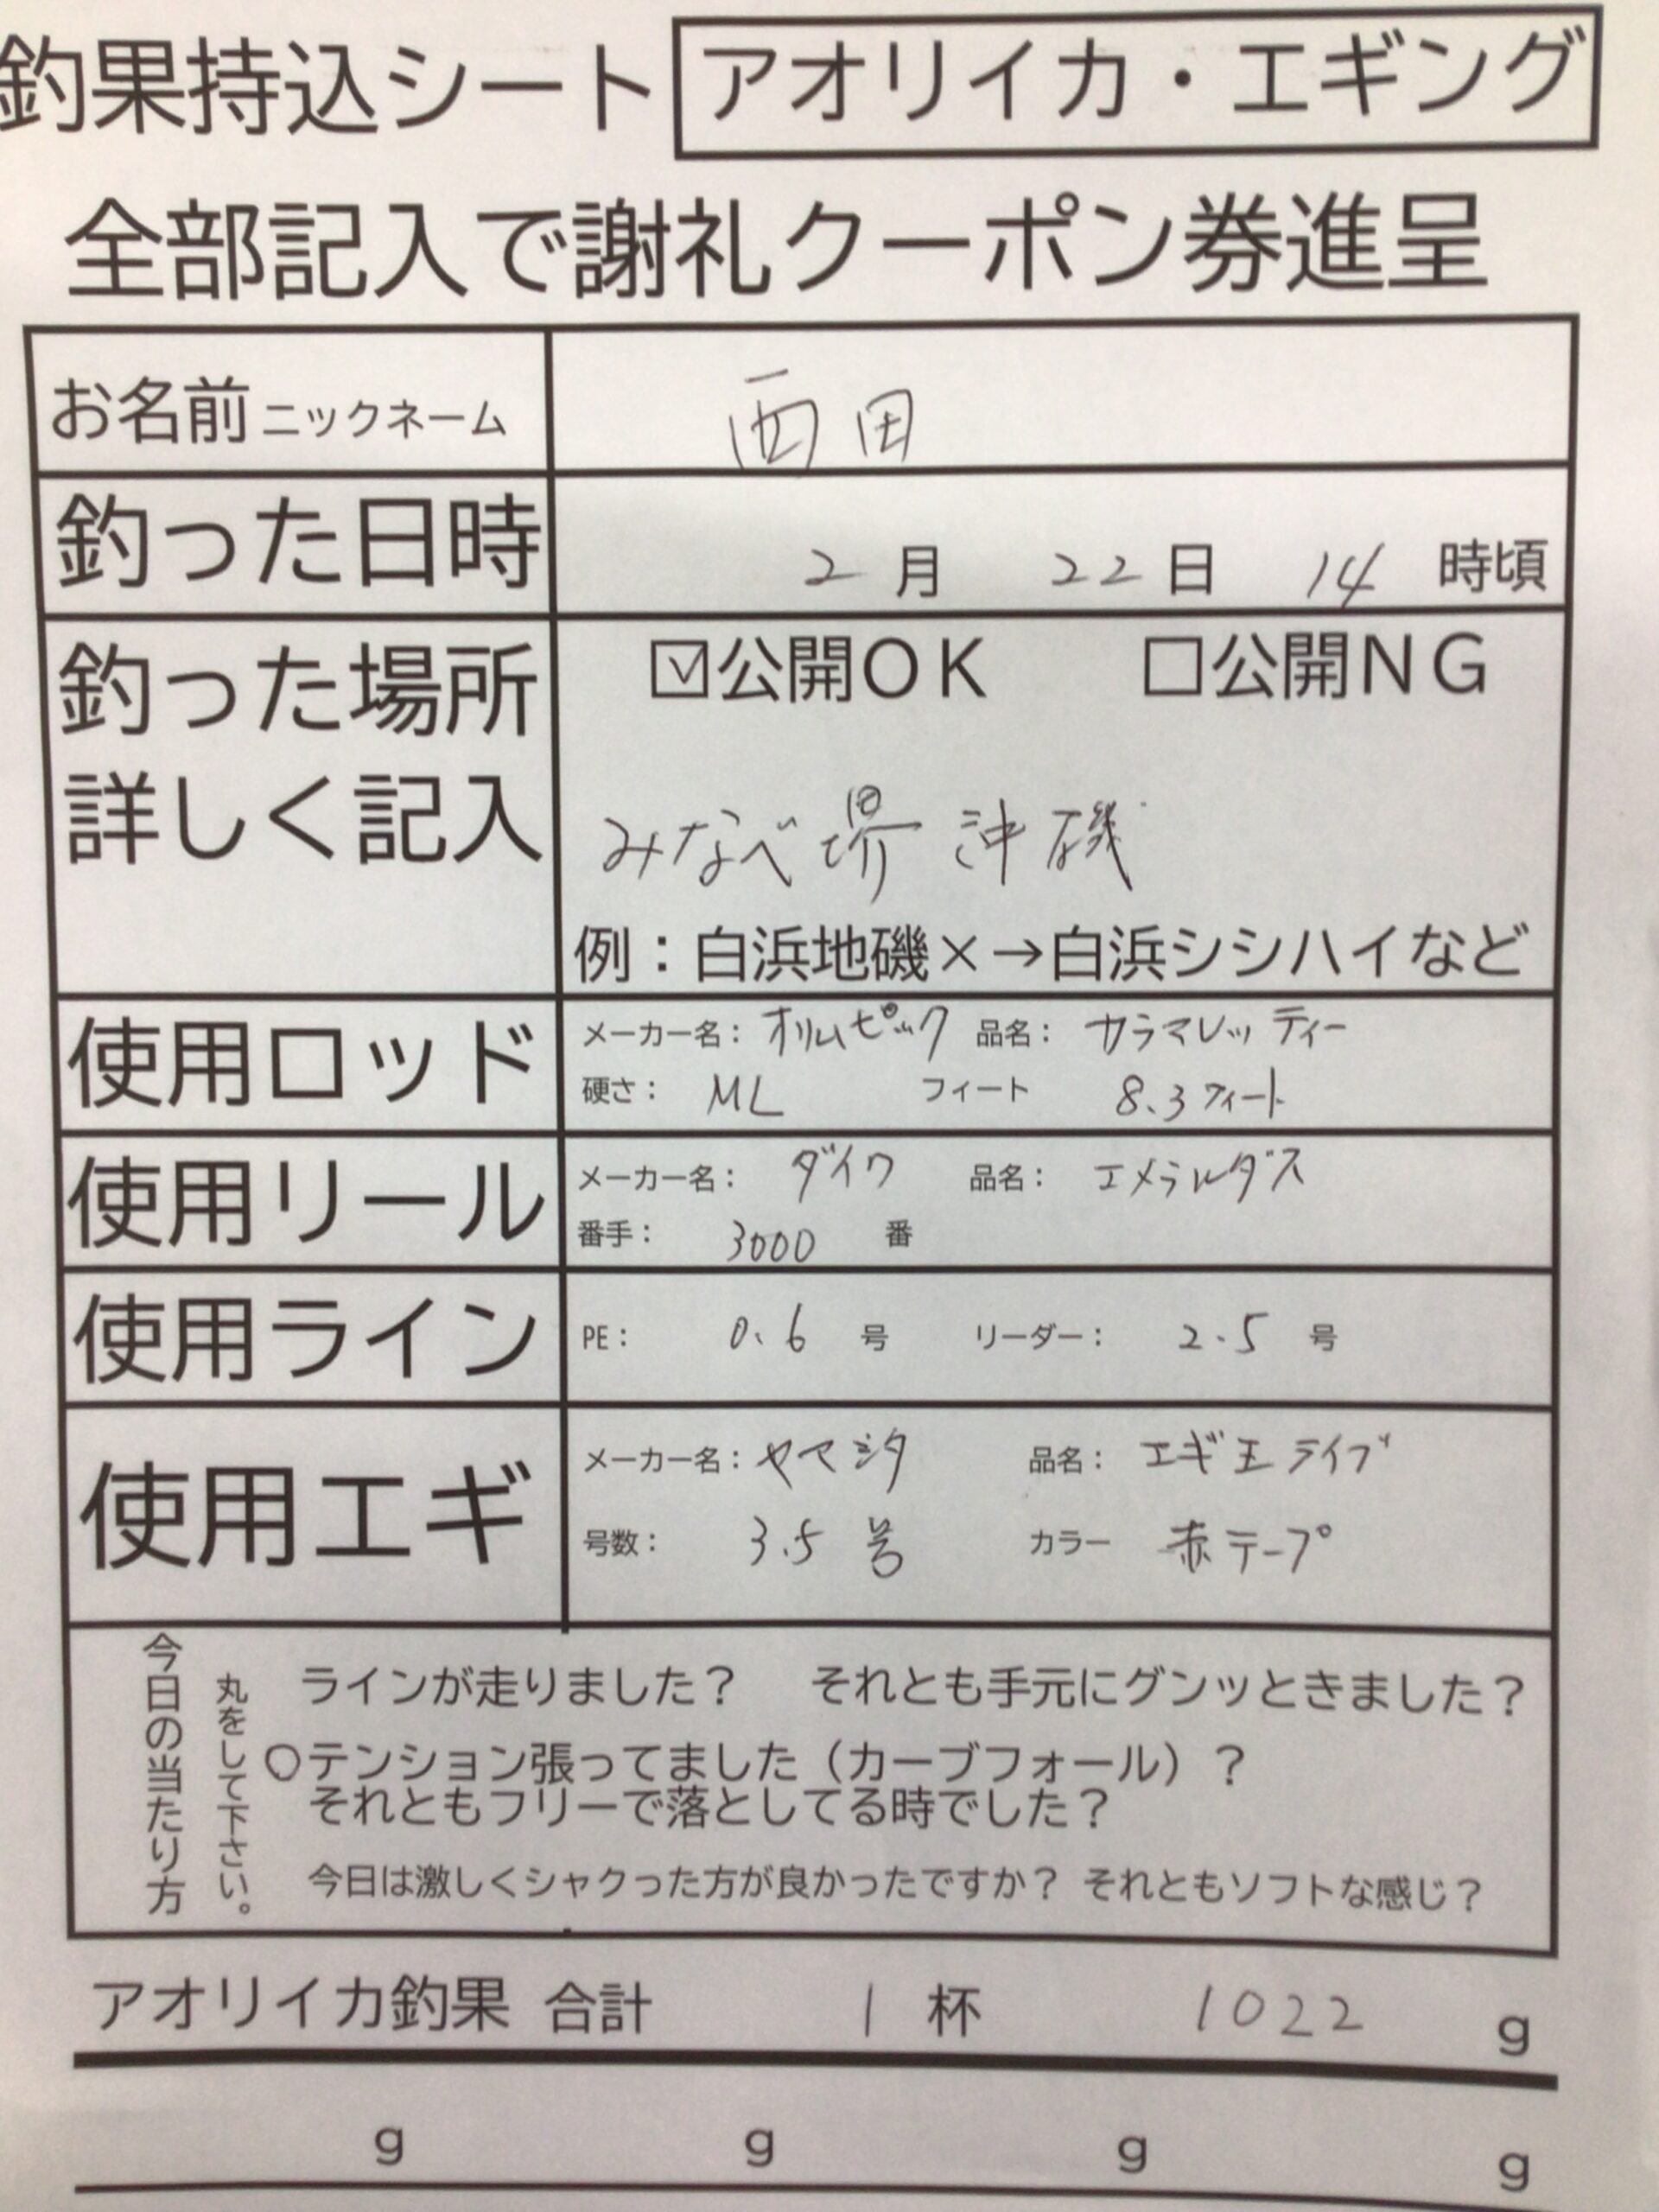 釣果持込シート アオリイカ・エギング
全部記入で謝礼クーポン券進呈
お名前 ニックネーム 西田
釣った日時 2月 22日 14時頃
釣った場所 ☑公開OK □公開NG
詳しく記入 みなべ堺 沖磯
例：白浜地磯×→白浜シシハイなど
使用ロッド メーカー名：オリムピック 品名：カラマレッティー
硬さ：ML フィート 8.3フィート
使用リール メーカー名：ダイワ 品名：エメラルダス
番手：3000番
使用ライン PE：0.6号 リーダー：2.5号
使用エギ メーカー名：ヤマシタ 品名：エギ王ライブ
号数：3.5号 カラー 赤テープ
今日の当たり方
丸をして下さい。
ラインが走りました？ それとも手元にグンッときました？
〇テンション張ってました（カーブフォール）？
それともフリーで落としてる時でした？
今日は激しくシャクった方が良かったですか？ それともソフトな感じ？
アオリイカ釣果 合計 1杯 1022g
g g g g